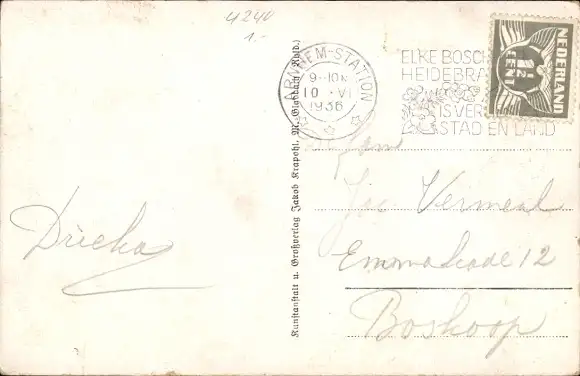 4240
1.-
ARNHEM-STATION
9-10N
10 VI
1936
ELKE BOSCH
HEIDEBRA
IS VER
STAD EN LAND
NEDERLAND
1½
CENT
Kunstanstalt u. Großverlag Jakob Krapohl, M. Gladbach (Rhld.)
Fam
Jac Vermeul
Emmakade 12
Boskoop
Dricka